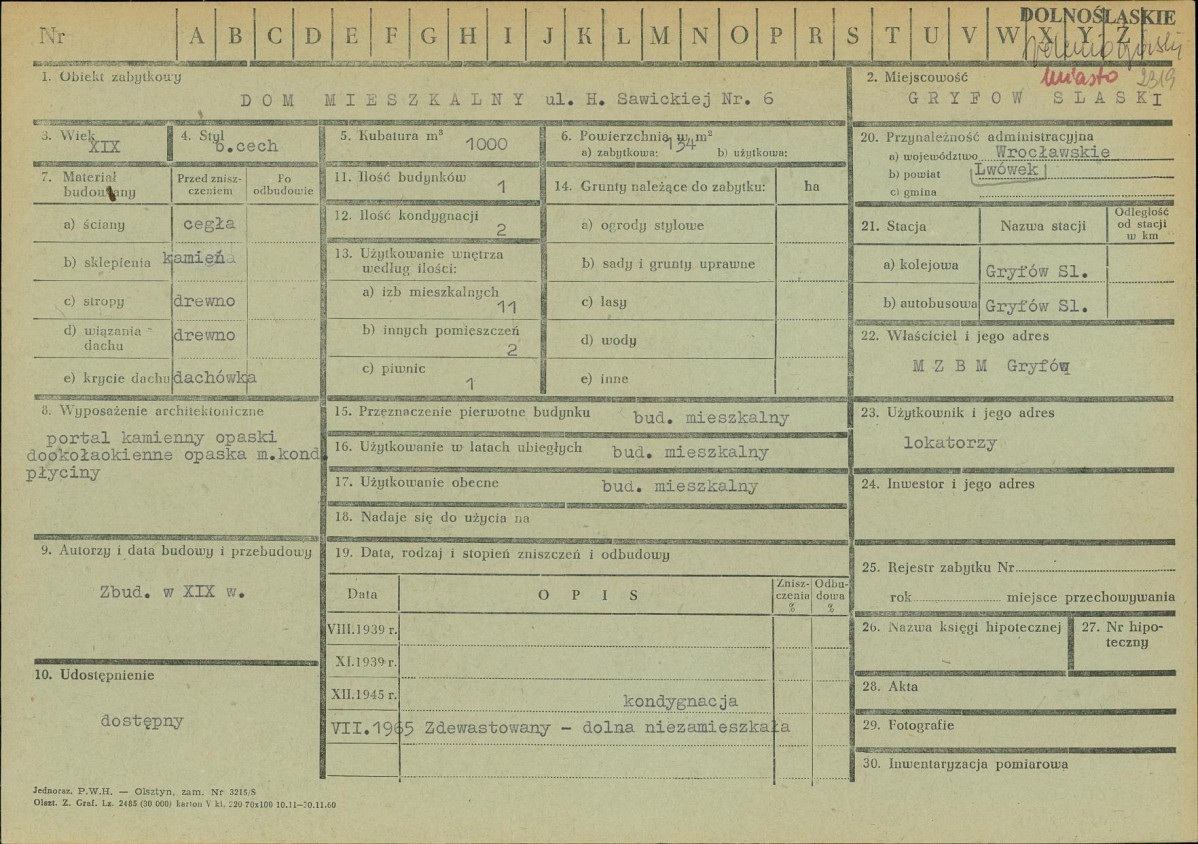 DOLNOŚLĄSKIE
Nr A B C D E F G H I J K L M N O P R S T U V W X Y Z
miasto 2319
1. Obiekt zabytkowy
DOM MIESZKALNY ul. H. Sawickiej Nr. 6
2. Miejscowość
GRYFOW SLASKI
3. Wiek
XIX
4. Styl
b.cech
5. Kubatura m³
1000
6. Powierzchnia w m²
a) zabytkowa: 134 b) użytkowa:
7. Materiał budowlany
Przed zniszczeniem
Po odbudowie
a) ściany cegła
b) sklepienia kamień
c) stropy drewno
d) wiązania dachu drewno
e) krycie dachu dachówka
8. Wyposażenie architektoniczne
portal kamienny opaski
dookołaokienne opaska m.kond.
płyciny
9. Autorzy i data budowy i przebudowy
Zbud. w XIX w.
10. Udostępnienie
dostępny
11. Ilość budynków
1
12. Ilość kondygnacji
2
13. Użytkowanie wnętrza
według ilości:
a) izb mieszkalnych
11
b) innych pomieszczeń
2
c) piwnic
1
14. Grunty należące do zabytku: ha
a) ogrody stylowe
b) sady i grunty uprawne
c) lasy
d) wody
e) inne
15. Przeznaczenie pierwotne budynku bud. mieszkalny
16. Użytkowanie w latach ubiegłych bud. mieszkalny
17. Użytkowanie obecne bud. mieszkalny
18. Nadaje się do użycia na
19. Data, rodzaj i stopień zniszczeń i odbudowy
Data OPIS Zniszczenia % Odbudowa %
VIII.1939 r.
XI.1939 r.
XII.1945 r.
kondygnacja
VII.1965 Zdewastowany - dolna niezamieszkała
20. Przynależność administracyjna
a) województwo Wrocławskie
b) powiat Lwówek
c) gmina
21. Stacja Nazwa stacji Odległość od stacji w km
a) kolejowa Gryfów Sl.
b) autobusowa Gryfów Sl.
22. Właściciel i jego adres
M Z B M Gryfów
23. Użytkownik i jego adres
lokatorzy
24. Inwestor i jego adres
25. Rejestr zabytku Nr
rok miejsce przechowywania
26. Nazwa księgi hipotecznej
27. Nr hipoteczny
28. Akta
29. Fotografie
30. Inwentaryzacja pomiarowa
Jednoraz. P.W.H. — Olsztyn, zam. Nr 3215/S
Olszt. Z. Graf. Lz. 2485 (30 000) karton V kl. 220 70x100 10.11—30.11.60